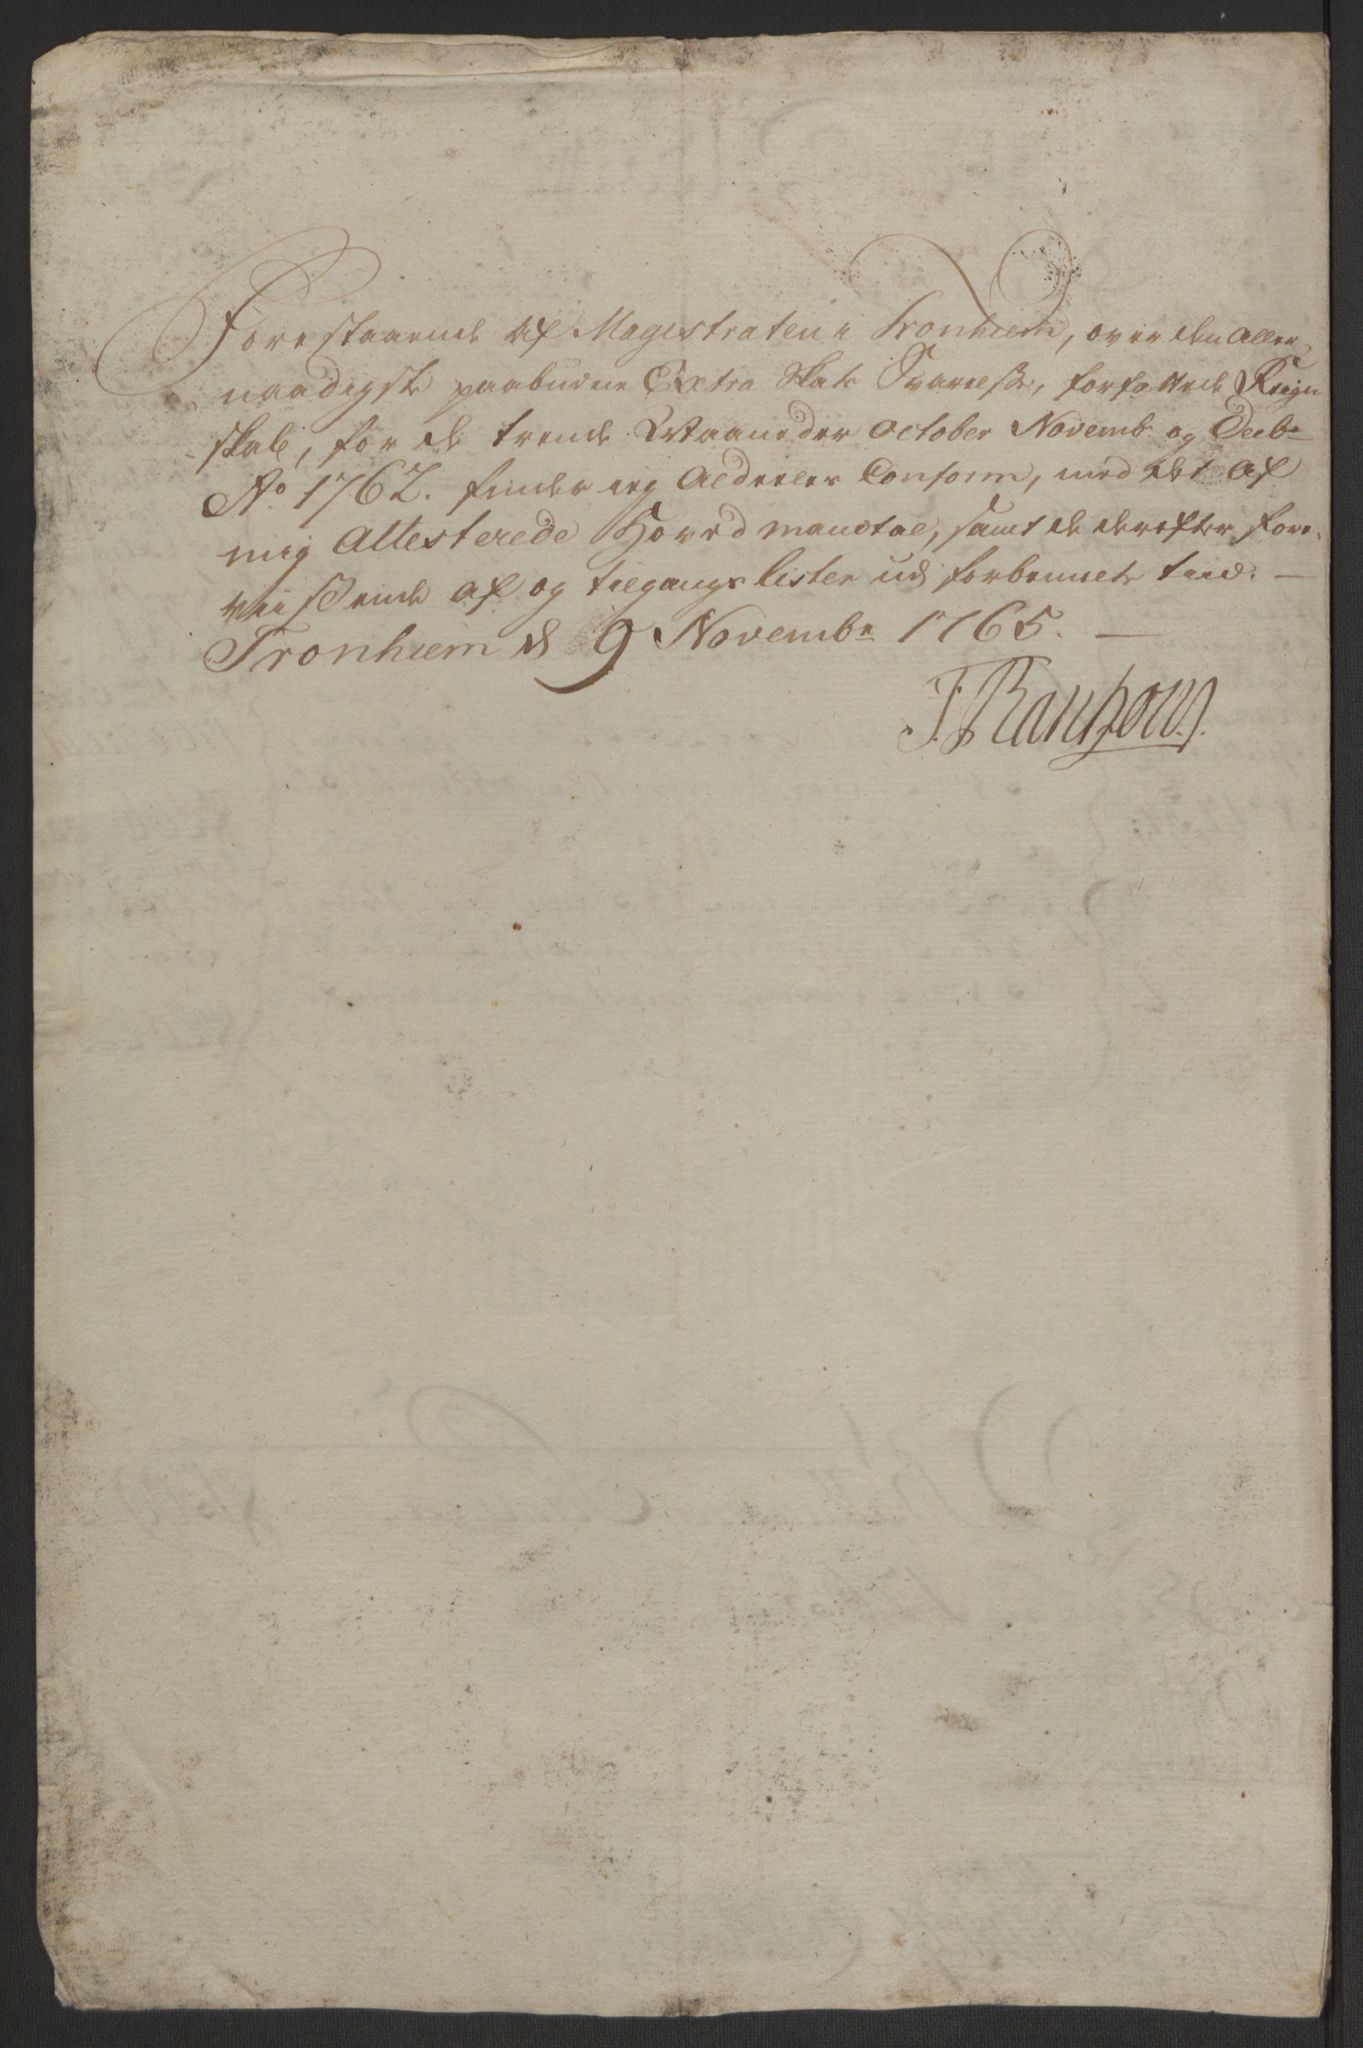 Forestaaende af Magistraten i Tronhiem, over den Aller-
naadigst paabudne Extra Skats Svarelse, forfattede Reign
skab, for de trende Maaneder October Novemb og Decbr
Ao 1762. finder ieg Aldeeles Conform, med det af
mig Attesterede Hoved Mandtal, samt de derefter fore-
viisende af og tilgangs lister ud forbenente tiid. —
Tronhiem d 9 Novembr 1765. —
F Rantzow